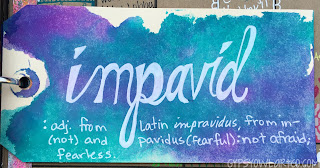 impavid
: adj. from Latin impravidus, from in-
(not) and pavidus (fearful): not afraid;
fearless.